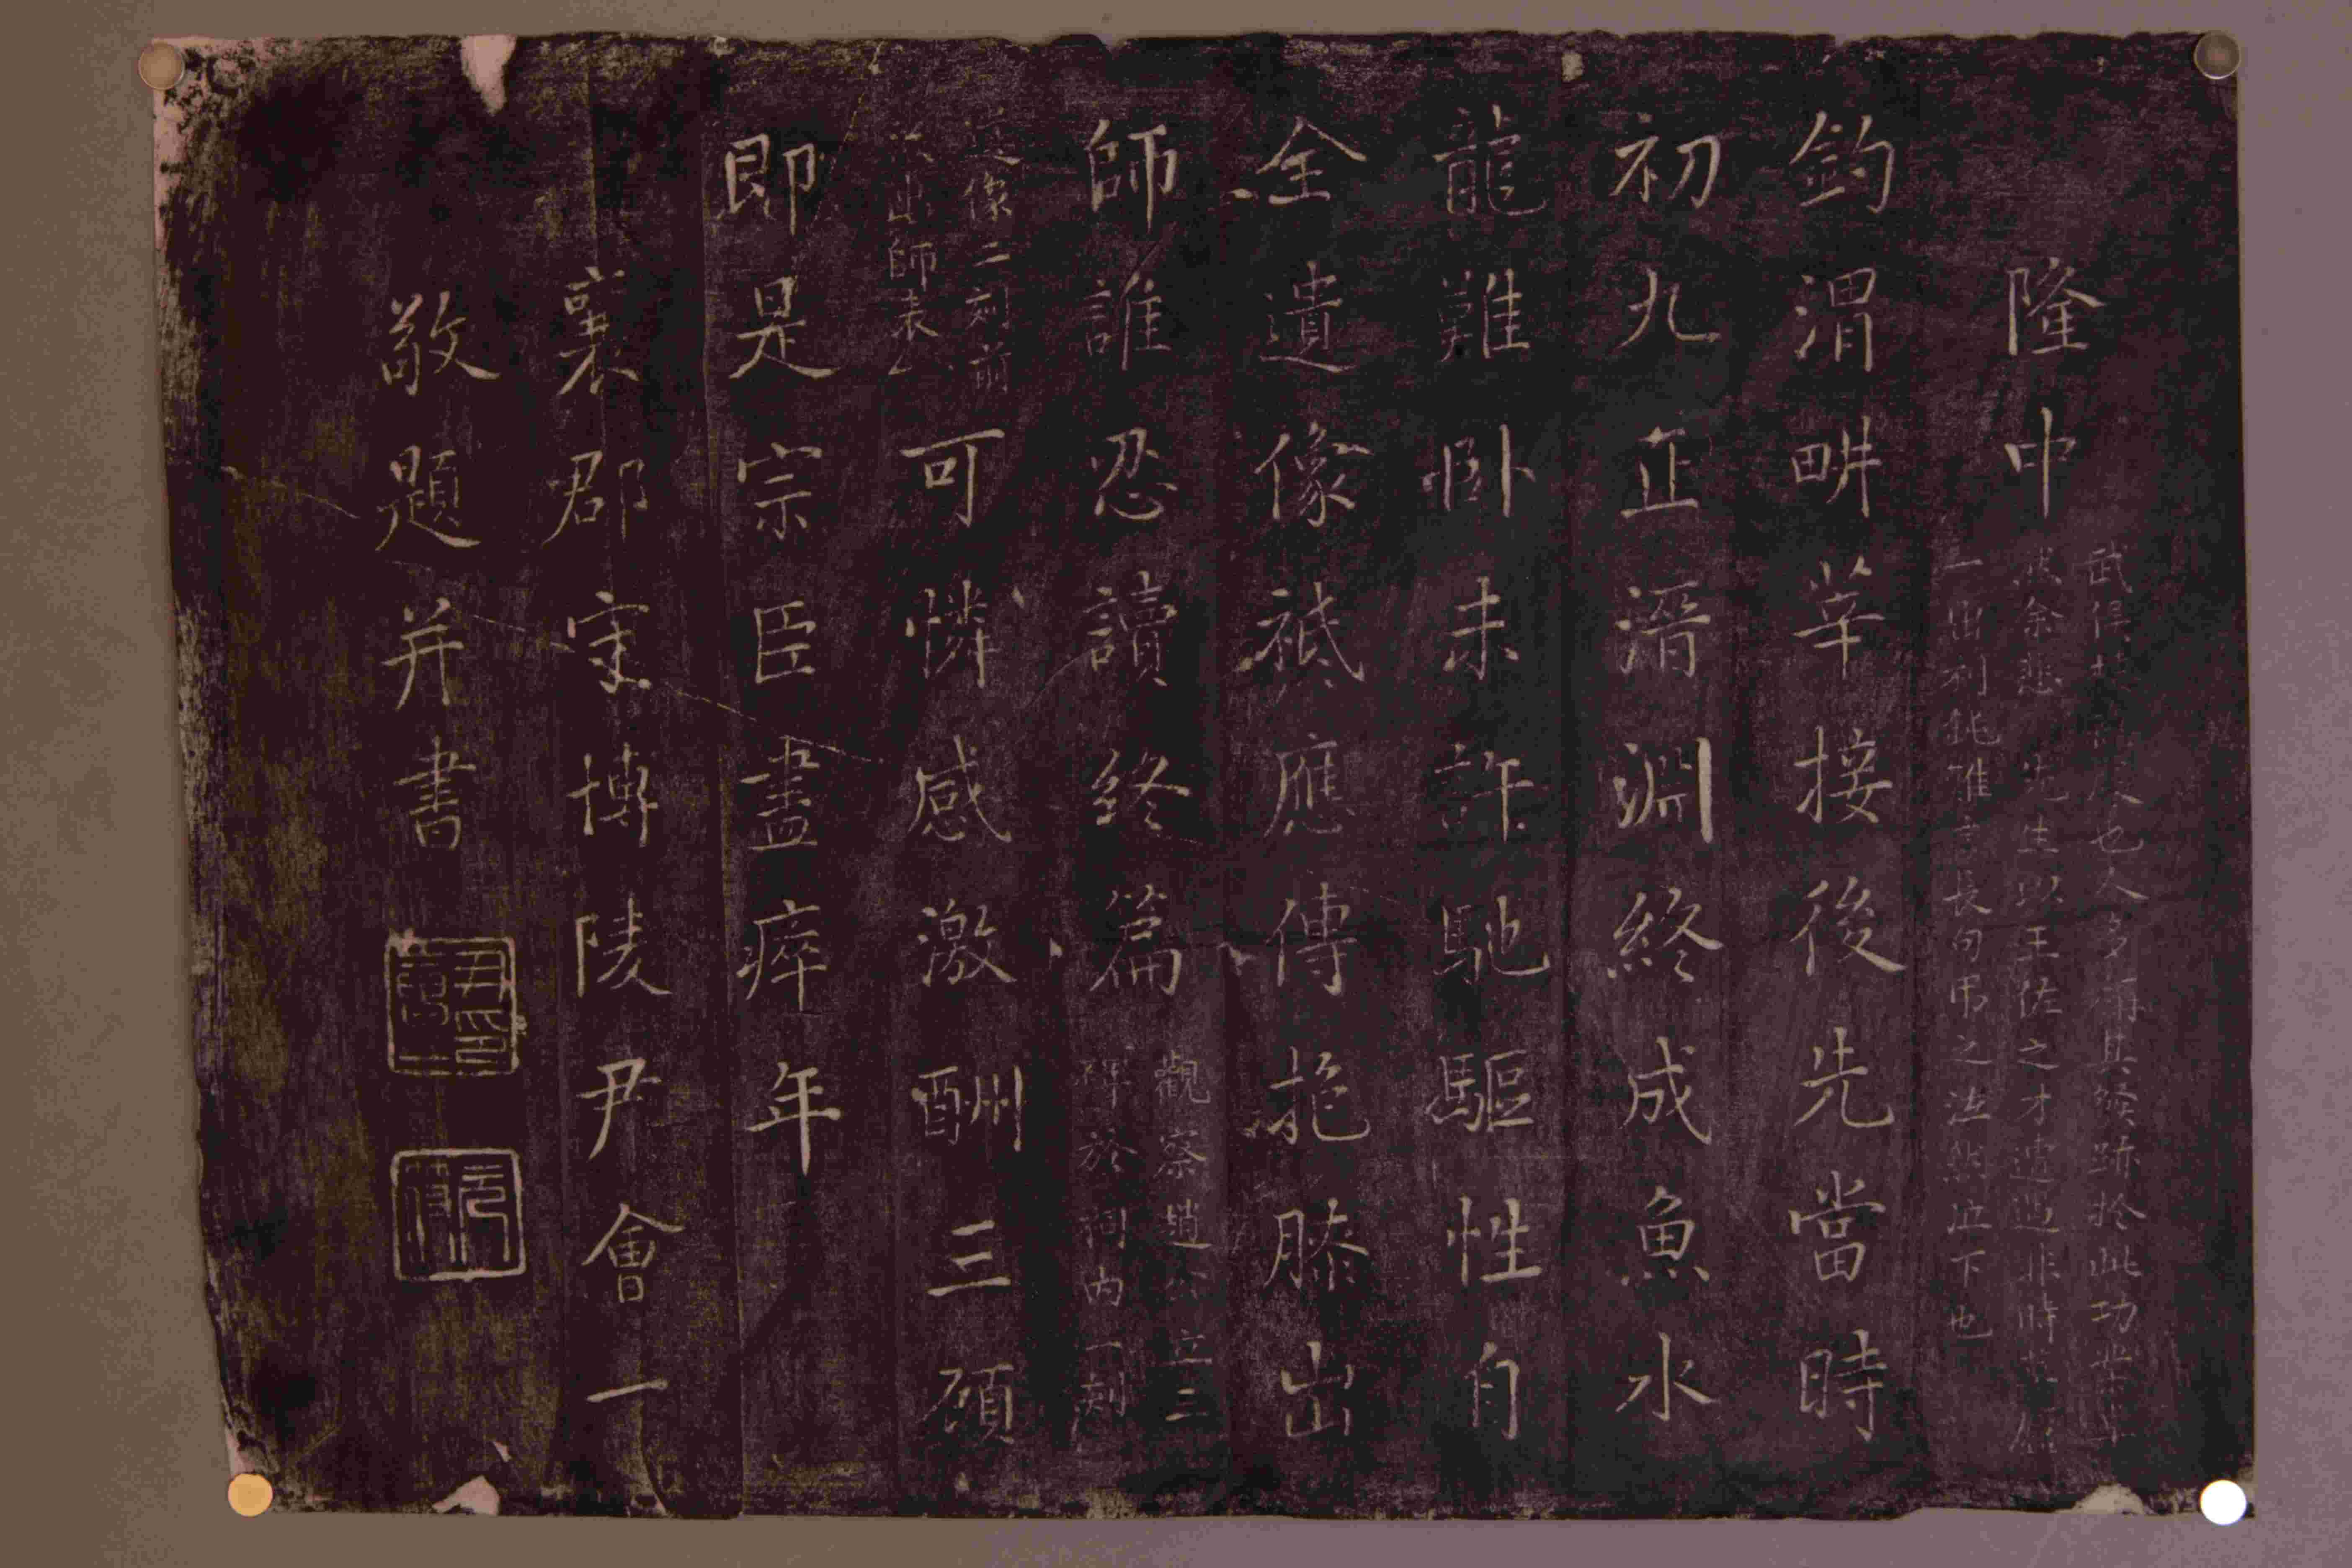 隆中
武侯
也人多稱其發跡於此功業
余悲先生以王佐之才遭遇非時
一出利鈍難言長句弔之泫然泣下也
釣渭畊莘接後先當時
初九正潛淵終成魚水
龍難卧未許馳驅性自
全遺像祇應傳抱膝出
師誰忍讀終篇
觀察趙公立二
碑於祠内一刻
遺像一刻前
出師表
可憐感激酬三顧
即是宗臣盡瘁年
襄郡守博陵尹會一
敬題并書
尹印會一
元孚